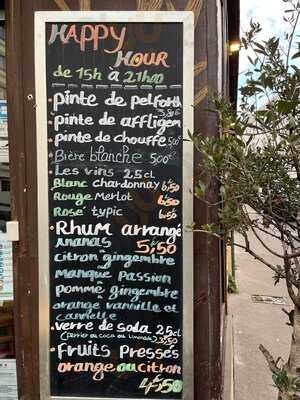 HAPPY
HOUR
de 15h à 21h00
pinte de pelforth
pinte de affligem
pinte de chouffe
Bière blanche 500€
Les vins 25cl
Blanc chardonnay 6,50
Rouge Merlot 6,50
Rosé typic 6,50
Rhum arrangé
ananas 5,50
citron gingembre
mangue passion
pomme gingembre
orange vannille et
cannelle
verre de soda 25cl
(perrier ou coca ou limonade) 3,50
Fruits Pressés
orange ou citron
4,50